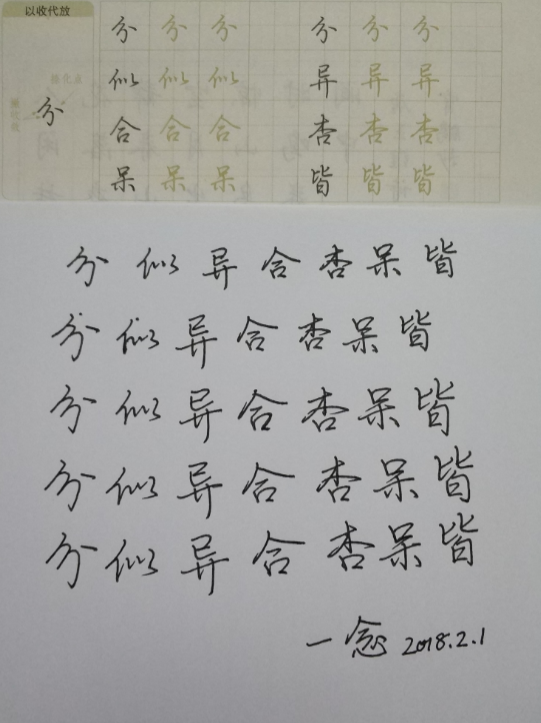 以收代放
分 分 分 分 分 分 分
似 似 似 异 异 异
合 合 合 杏 杏 杏
呆 呆 呆 皆 皆 皆
分 似 异 合 杏 呆 皆
分 似 异 合 杏 呆 皆
分 似 异 合 杏 呆 皆
分 似 异 合 杏 呆 皆
分 似 异 合 杏 呆 皆
一念 2018.2.1